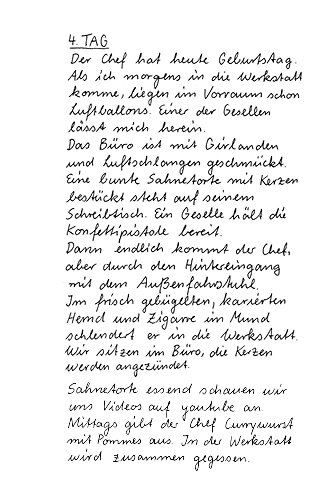 4. TAG
Der Chef hat heute Geburtstag.
Als ich morgens in die Werkstatt
komme, liegen im Vorraum schon
Luftballons. Einer der Gesellen
lässt mich herein.
Das Büro ist mit Girlanden
und Luftschlangen geschmückt.
Eine bunte Sahnetorte mit Kerzen
bestückt steht auf seinem
Schreibtisch. Ein Geselle hält die
Konfettipistole bereit.
Dann endlich kommt der Chef,
aber durch den Hintereingang
mit dem Außenfahrstuhl.
Im frisch gebügelten, karierten
Hemd und Zigarre im Mund
schlendert er in die Werkstatt.
Wir sitzen im Büro, die Kerzen
werden angezündet.
Sahnetorte essend schauen wir
uns Videos auf youtube an.
Mittags gibt der Chef Currywurst
mit Pommes aus. In der Werkstatt
wird zusammen gegessen.